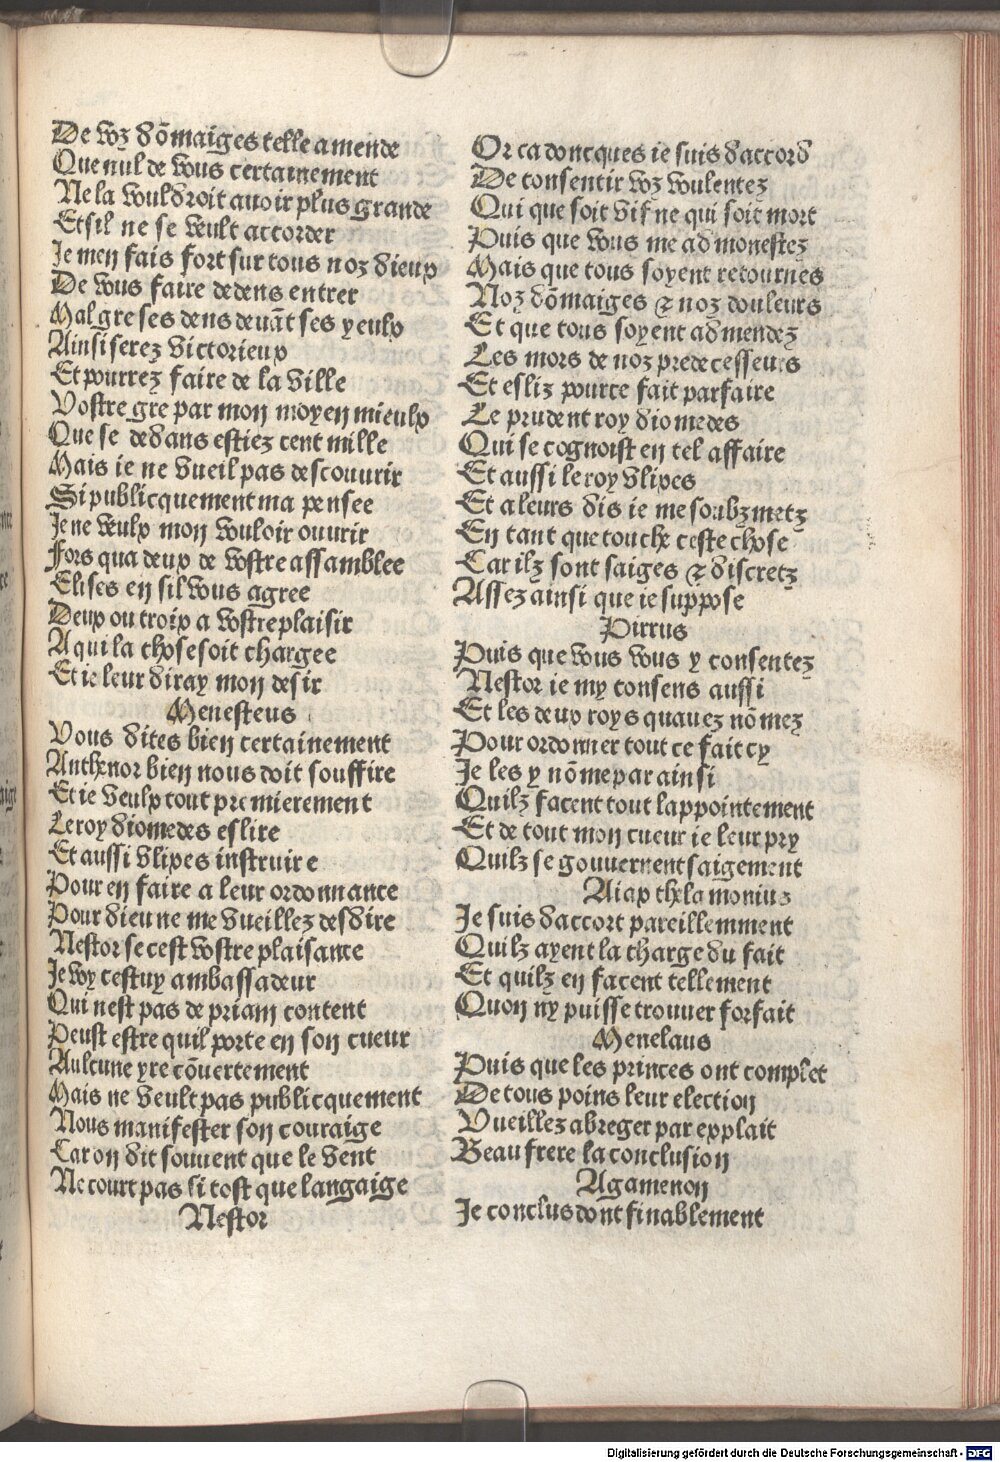 De voz dõmaiges telle amende
Que nul de vous certainement
Ne la vouldroit auoir plus grande
Et sil ne se veult accorder
Je men fais fort sur tous noz dieux
De vous faire dedens entrer
Malgre ses dens deuãt ses yeulx
Ainsi serez victorieux
Et pourrez faire de la ville
Vostre gre par mon moyen mieulx
Que se dedans estiez cent mille
Mais ie ne vueil pas descouurir
Si publicquement ma pensee
Je ne veulx mon vouloir ouurir
Fors qua deux de vostre assamblee
Elises en sil vous agree
Deux ou troix a vostre plaisir
A qui la chose soit chargee
Et ie leur diray mon desir
Menesteus
Vous dites bien certainement
Anthenor bien nous doit souffire
Et ie veulx tout premierement
Le roy diomedes eslire
Et aussi vlixes instruire
Pour en faire a leur ordonnance
Pour dieu ne me vueillez desdire
Nestor se cest vostre plaisance
Je voy cestuy ambassadeur
Qui nest pas de priam content
Peust estre quil porte en son cueur
Aulcune yre cõuertement
Mais ne veult pas publicquement
Nous manifester son couraige
Car on dit souuent que le vent
Ne court pas si tost que langaige
Nestor
Or ca doncques ie suis daccord
De consentir voz voulentez
Qui que soit vif ne qui soit mort
Puis que vous me admonestez
Mais que tous soyent retournes
Noz dõmaiges & noz douleurs
Et que tous soyent admendez
Les mors de noz predecesseurs
Et esliz pource fait parfaire
Le prudent roy diomedes
Qui se cognoist en tel affaire
Et aussi le roy vlixes
Et a leurs dis ie me soubzmetz
En tant que touche ceste chose
Car ilz sont saiges & discretz
Assez ainsi que ie suppose
Pirrus
Puis que vous vous y consentez
Nestor ie my consens aussi
Et les deux roys quauez nõmez
Pour ordonner tout ce fait cy
Je les y nõme par ainsi
Quilz facent tout lappointement
Et de tout mon cueur ie leur pry
Quilz se gouuernent saigement
Aiax thelamonius
Je suis daccort pareillemment
Quilz ayent la charge du fait
Et quilz en facent tellement
Quon ny puisse trouuer forfait
Menelaus
Puis que les princes ont complet
De tous poins leur election
Vueillez abreger par explait
Beau frere la conclusion
Agamenon
Je conclus dont finablement
Digitalisierung gefördert durch die Deutsche Forschungsgemeinschaft - DFG